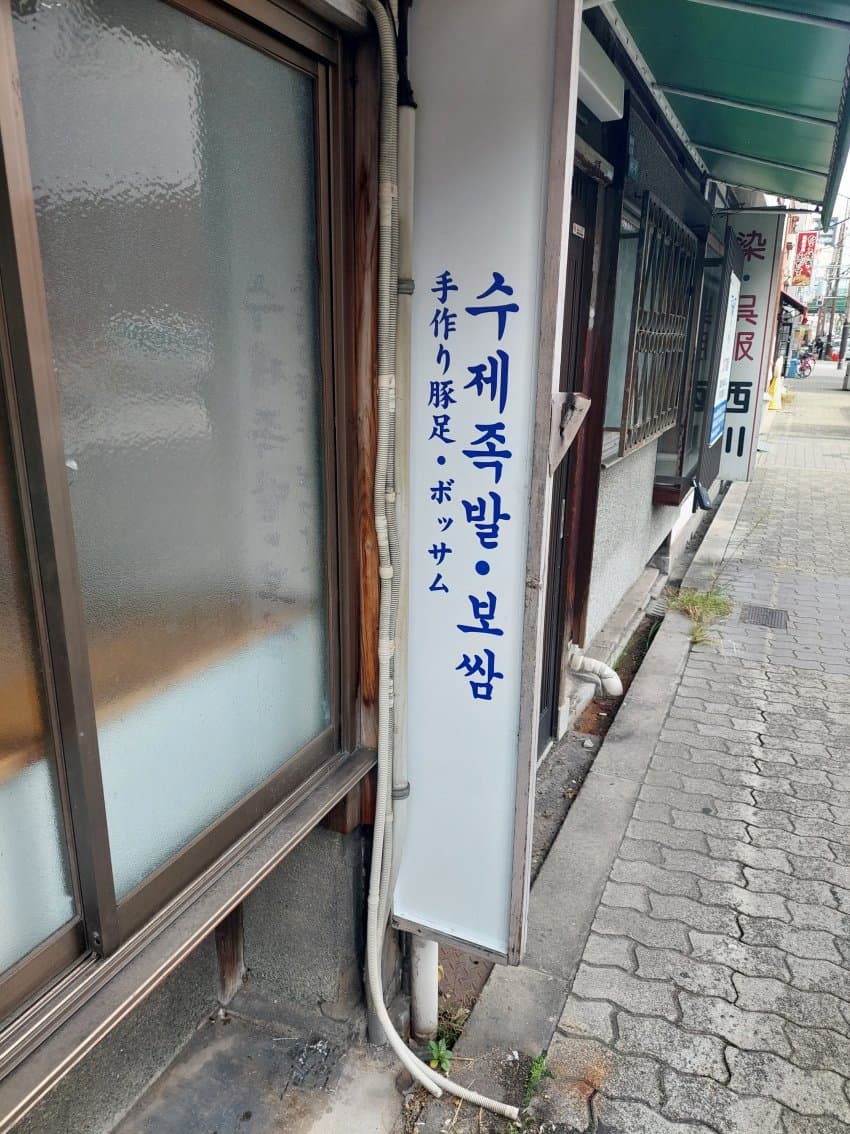 수제족발·보쌈
手作り豚足·ボッサム
染·呉服
西川